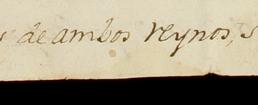 de ambos reynos, s